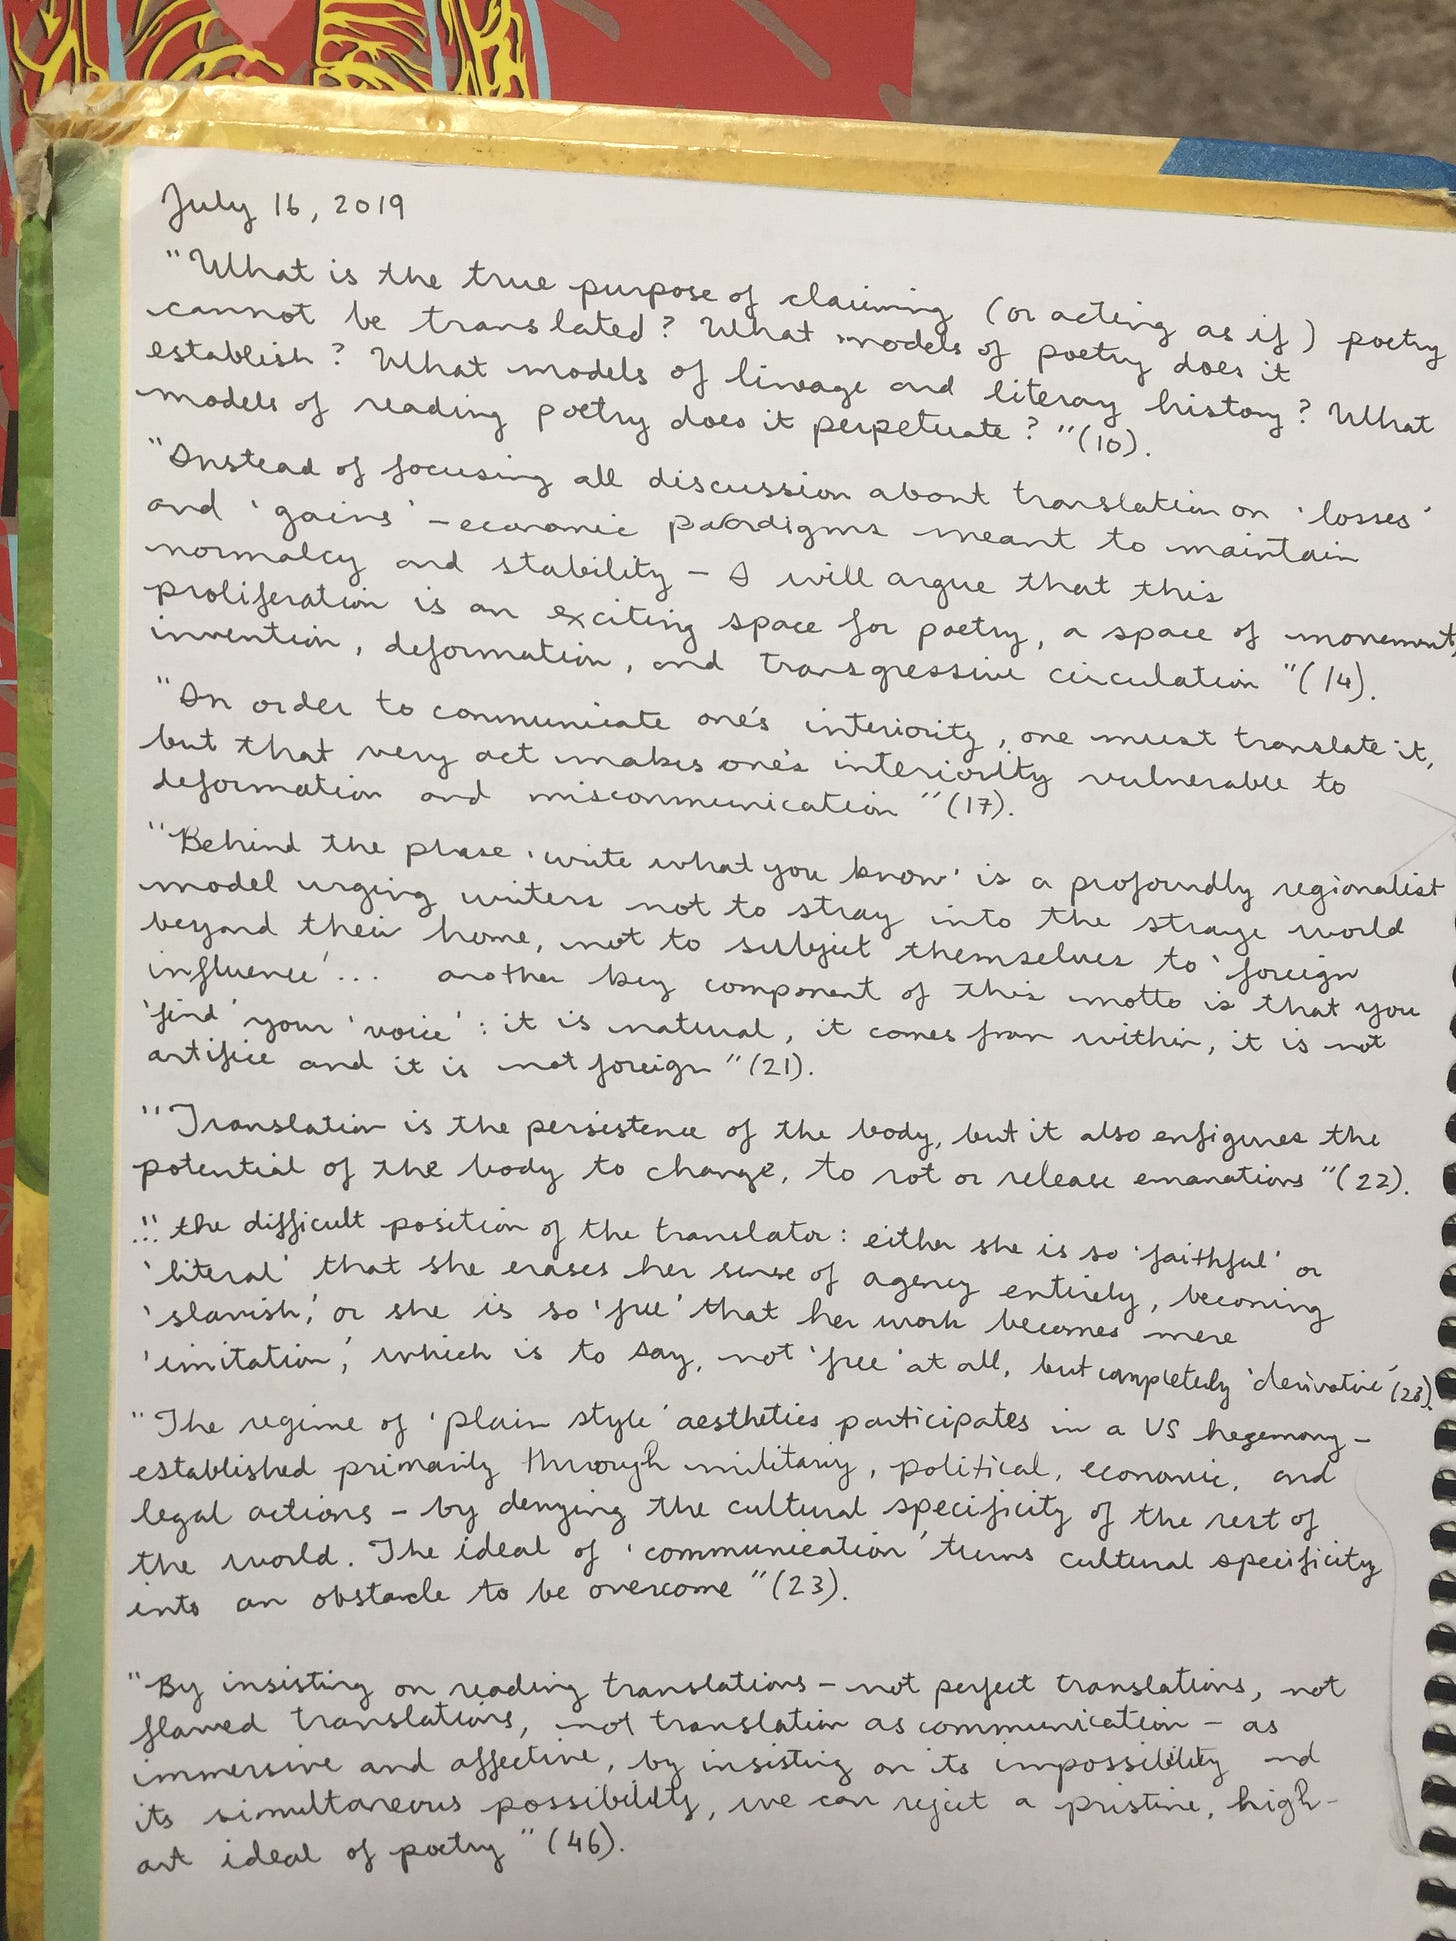 July 16, 2019
"What is the true purpose of claiming (or acting as if) poetry
cannot be translated? What models of poetry does it
establish? What models of lineage and literary history? What
models of reading poetry does it perpetuate?" (10).
"Instead of focusing all discussion about translation on 'losses'
and 'gains' – economic paradigms meant to maintain
normalcy and stability – I will argue that this
proliferation is an exciting space for poetry, a space of movement,
invention, deformation, and transgressive circulation" (14).
"In order to communicate one's interiority, one must translate it,
but that very act makes one's interiority vulnerable to
deformation and miscommunication" (17).
"Behind the phase 'write what you know' is a profoundly regionalist
model urging writers not to stray into the strage world
beyond their home, not to subject themselves to 'foreign
influence'... another key component of this motto is that you
'find' your 'voice': it is natural, it comes from within, it is not
artifice and it is not foreign" (21).
"Translation is the persistence of the body, but it also enfigures the
potential of the body to change, to rot or release emanations" (22).
the difficult position of the translator: either she is so 'faithful' or
'literal' that she erases her sense of agency entirely, becoming
'slavish,' or she is so 'free' that her work becomes mere
'imitation,' which is to say, not 'free' at all, but completely 'derivative' (23).
"The regime of 'plain style' aesthetics participates in a US hegemony –
established primarily through military, political, economic, and
legal actions – by denying the cultural specificity of the rest of
the world. The ideal of 'communication' turns cultural specificity
into an obstacle to be overcome" (23).
"By insisting on reading translations – not perfect translations, not
flawed translations, not translation as communication – as
immersive and affective, by insisting on its impossibility and
its simultaneous possibility, we can reject a pristine, high-
art ideal of poetry" (46).